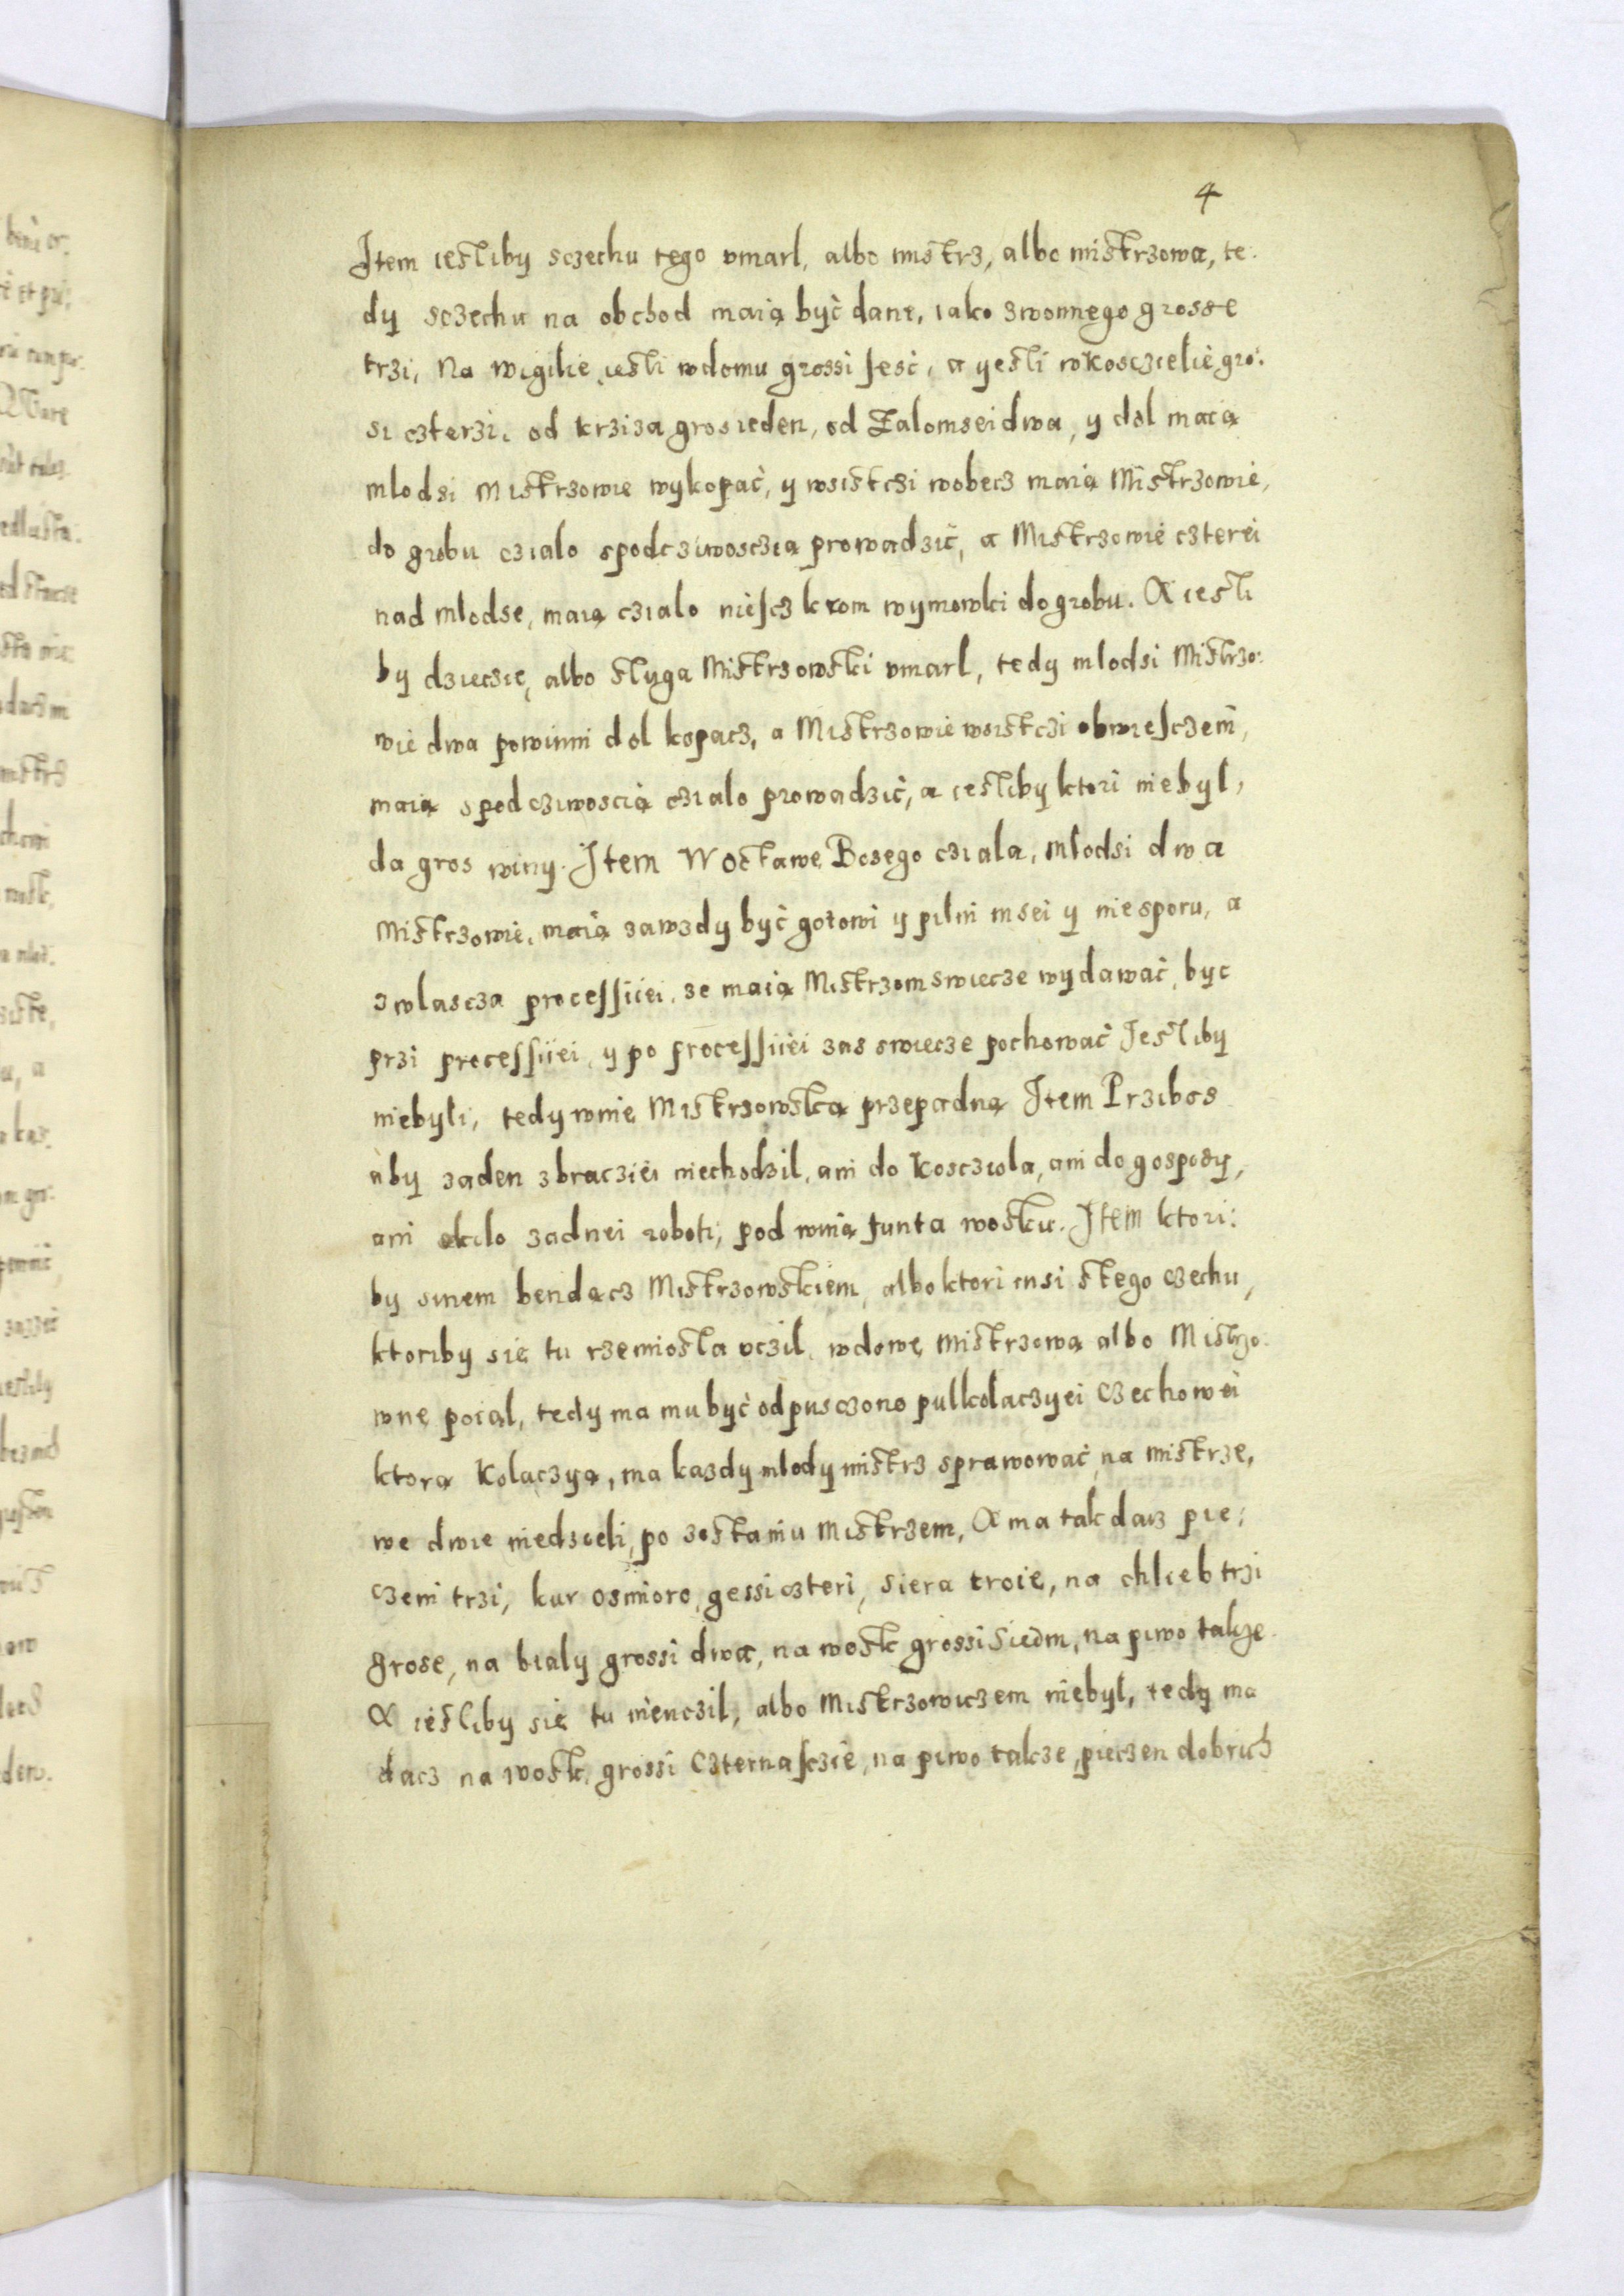 4
Item iesliby sczechu tego vmarl, albo mistrz, albo mistrzowa, te:
dy sczechu na obchod maią być dane, iako zwonnego grosse
trzi, Na wigilie iesli wdomu grossi ſesć, a yesli wkosczielie gro:
si czterzi, od krziza gros ieden, od Zalomsei dwa, y dol maią
mlodsi Mistrzowie wykopać, y wsistczi wobecz maią Mistrzowie,
do grobu czialo spodcziwosczią prowadzić, a Mistrzowie czterei
nad mlodse, maią czialo nieſcz krom wymowki do grobu. A iesli
by dzieczię, albo sluga Mistrzowski vmarl, tedy mlodsi Mistrzo:
wie dwa powinni dol kopacz, a Mistrzowie wsistczi obwieſczeni,
maią spodcziwoscią czialo prowadzić, a iesliby ktori niebyl,
da gros winy. Item W Octawę Bozego cziala, mlodsi dwa
Mistrzowie, maią zawzdy być gotowi y pilni msei y niesporu, a
zwlascza proceſſiiei, ze maią Mistrzom swiecze wydawać, byc
przi proceſſiiei, y po proceſſiiei zas swiecze pochować Iesliby
niebyli, tedy winę Mistrzowską przepadną Item Przibos
aby zaden zbracziei niechodzil, ani do Koscziola, ani do gospody,
ani okolo zadnei roboti, pod winą funta wosku. Item ktori:
by sinem bendącz Mistrzowskiem, albo ktori insi stego czechu,
ktoriby się tu rzemiosla vczil, wdowę mistrzową albo Mistrzo:
wnę poiąl, tedy ma mu być odpusczono pulkolaczyei Czechowei
ktorą Kolaczyą, ma kazdy mlody mistrz sprawowac na mistrze,
we dwie niedzieli, po zostaniu Mistrzem, A ma tak dacz pie:
czeni trzi, kur osmioro, gessi czteri, siera troie, na chlieb trzi
grose, na bialy grossi dwa, na wosk grossi Siedm, na piwo takze
A iesliby się tu nienczil, albo Mistrzowiczem niebyl, tedy ma
dacz na wosk, grossi Czternaſczie, na piwo takze, pieczen dobrich